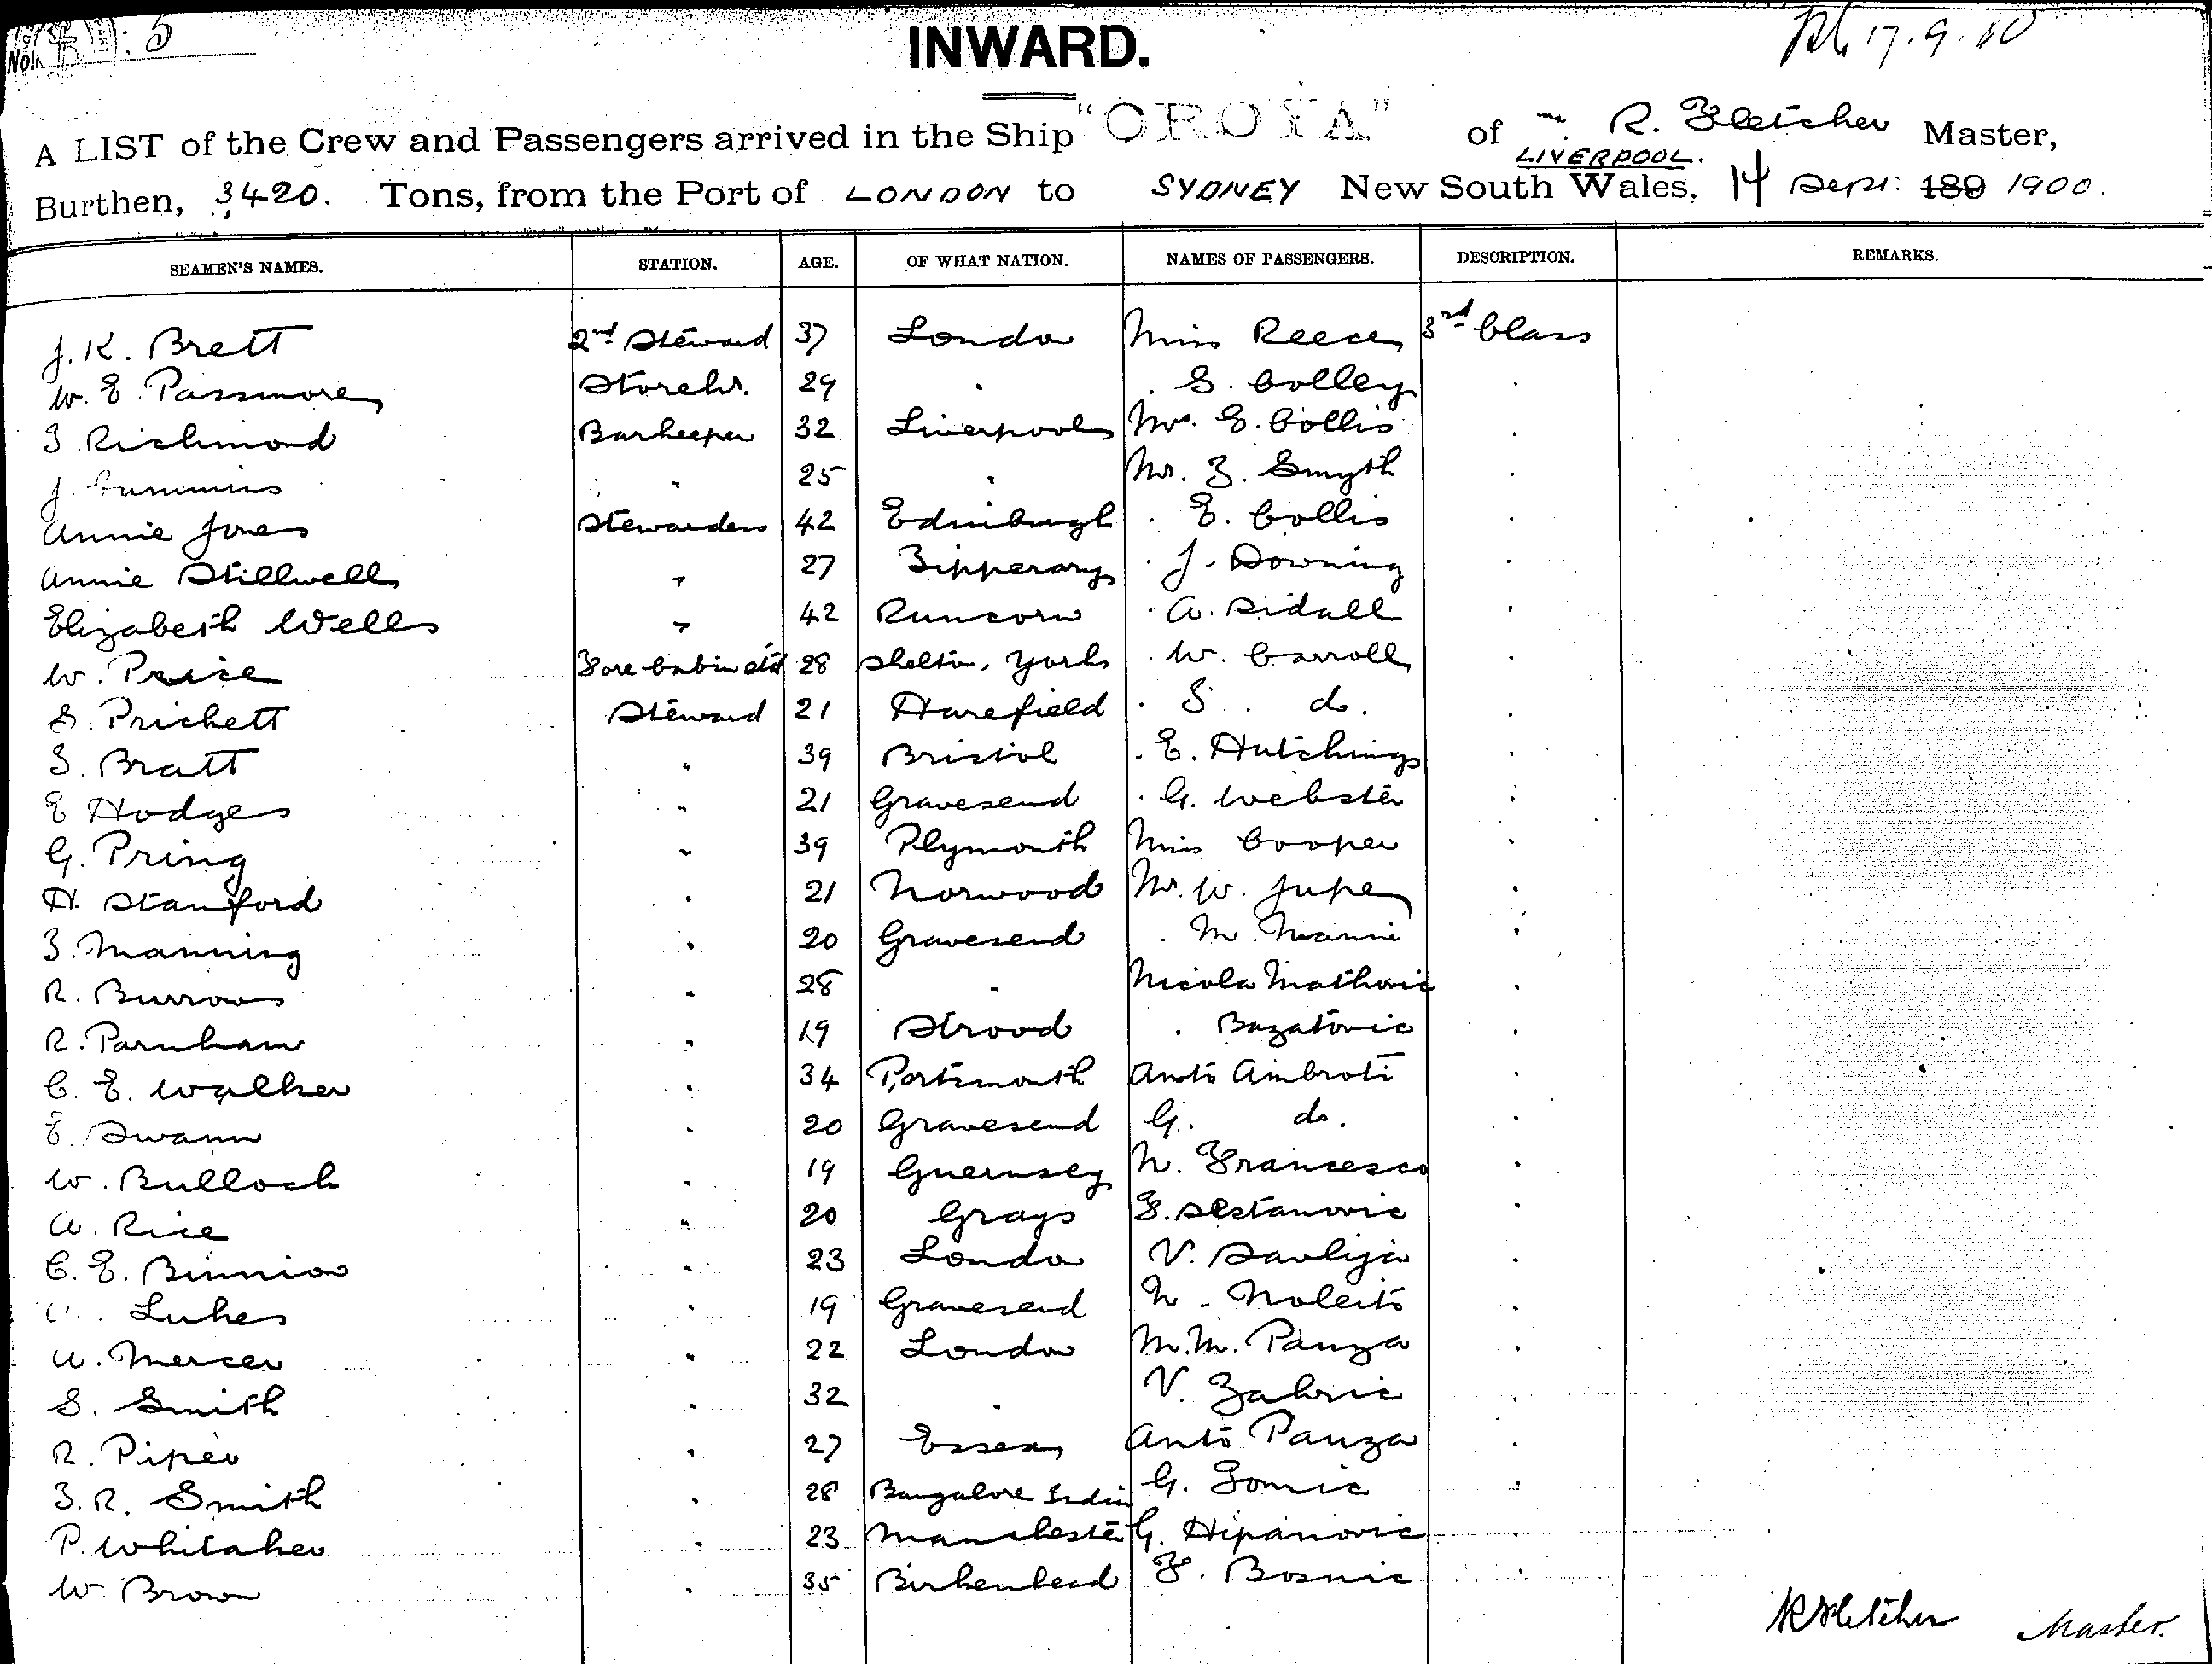 5
INWARD.
17.9.00
A LIST of the Crew and Passengers arrived in the Ship "OROYA" of LIVERPOOL. R. Fletcher Master,
Burthen, 3420. Tons, from the Port of LONDON to SYDNEY New South Wales, 14 Sept: 189 1900.
SEAMEN'S NAMES. STATION. AGE. OF WHAT NATION. NAMES OF PASSENGERS. DESCRIPTION. REMARKS.
J. K. Brett 2nd Steward 37 London Miss Reece 3rd Class
W. E. Passmore Storekr. 29 " " S. Colley "
T. Richmond Barkeeper 32 Liverpool Mrs. E. Collis "
J. Cummins " 25 " Mr. T. Smyth "
Annie Jones Stewardess 42 Edinburgh " E. Collis "
Annie Stillwell " 27 Tipperary " J. Downing "
Elizabeth Wells " 42 Runcorn " A. Sidall "
W. Preise Fore Cabin Std 28 Skelton, Yorks " W. Carroll "
S. Prichett Steward 21 Harefield " S. do. "
T. Bratt " 39 Bristol " E. Hutchings "
E Hodges " 21 Gravesend " G. Webster "
G. Pring " 39 Plymouth Miss Cooper "
H. Stanford " 21 Norwood Mr. W. Jupe "
T. Manning " 20 Gravesend " M. Manni "
R. Burrows " 28 " Nicola Mathovic "
R. Parnham " 19 Strood " Bazatovic "
C. E. Walker " 34 Portsmouth Anto Ambroti "
E. Swann " 20 Gravesend G. do. "
W. Bulloch " 19 Guernsey N. Francesco "
A. Rice " 20 Grays F. Sestanovic "
C. E. Binnion " 23 London V. Savlija "
Lukes " 19 Gravesend N. Noleito "
A. Mercer " 22 London M. M. Panza "
S. Smith " 32 " V. Zahric "
R. Piper " 27 Essex Anto Panza "
T. R. Smith " 28 Bangalore India G. Tomic "
P. Whitaker " 23 Manchester G. Hipanovic "
W. Brown " 35 Birkenhead F. Bosnic "
R Fletcher Master.